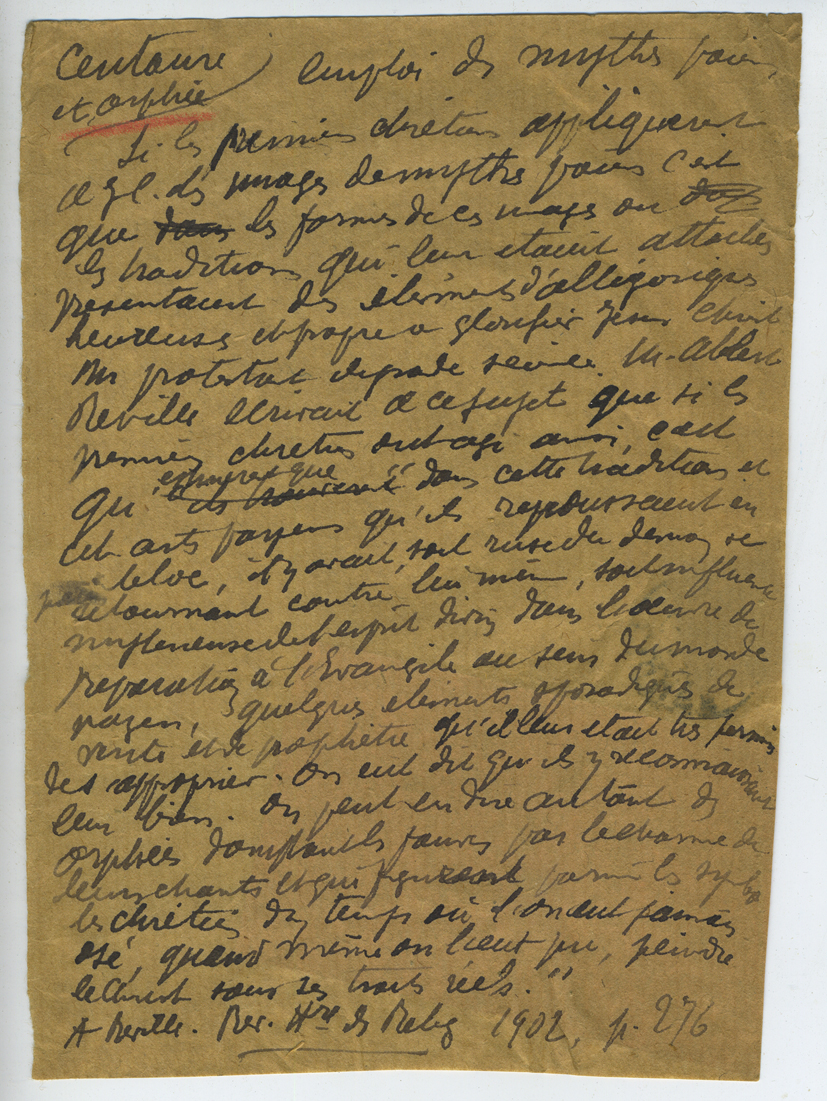 Centaure emploi des mythes païens
et Orphée
Si les premiers chrétiens appliquèrent
des images de mythes païens c'est
que dans les formes de ces images ou dans
les traditions qui leur étaient attachées
présentaient des éléments d'allégorique
heureuse et propre a glorifier Jesus Christ
Un protestant M. Albert
Reville écrivait à ce sujet que si les
premiers chrétiens ont agi ainsi, c'est
qu' dans cette tradition et
cet arts payens qu'ils repoussaient en
bloc, il y avait, soit ruse du demon se
retournant contre lui même, soit influence
mysterieuse de l'esprit divin dans l'œuvre de
preparation à l'Evangile au sein du monde
payen, quelques elements sporadiques de
verité et de prophétie qu'il leur était très permis
de s'approprier. On eut dit qu'ils y reconnaissaient
leur bien. On peut en dire autant des
Orphées domptant les fauves par le charme de
leurs chants et qui figurent parmi les symboles
chrétiens du temps où l'on eut jamais
osé, quand même on l'eut pu, peindre
le Christ sous ses traits réels."
A Reville. Rev. Hre des Relig 1902, p. 276